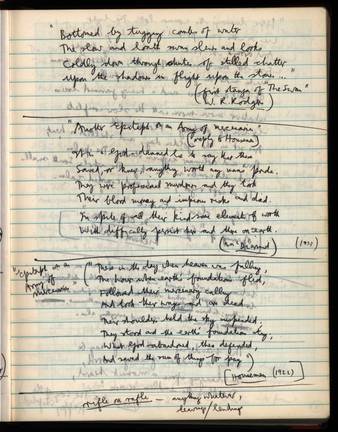 "Bottomed by tugging combs of water
The slow and loath swan slews and looks
Coldly down through chutes of stilled chatter
upon the shadows in flight upon the stones..."
(first stanza of "The Swan"
W. R. Rodgers)
"Another Epitaph on an Army of Mercenaries"
(reply to Housman)
It is a God-damned lie to say that these
Saved, or knew, anything worth any man's pride.
They were professional murderers and they took
Their blood money and impious risks and died.
In spite of all their kind some element of worth
With difficulty persists here and there on earth.
(MacDiarmid) (1935)
"Epitaph on an
Army of
Mercenaries"
"These in the day when heaven was falling,
The hour when earth's foundations fled,
Followed their mercenary calling
And took their wages and are dead.
Their shoulders held the sky suspended,
They stood and the earth's foundations stay,
What God abandoned, these defended,
And saved the sum of things for pay."
Housman (1922)
rifle or riffle — anything whatever,